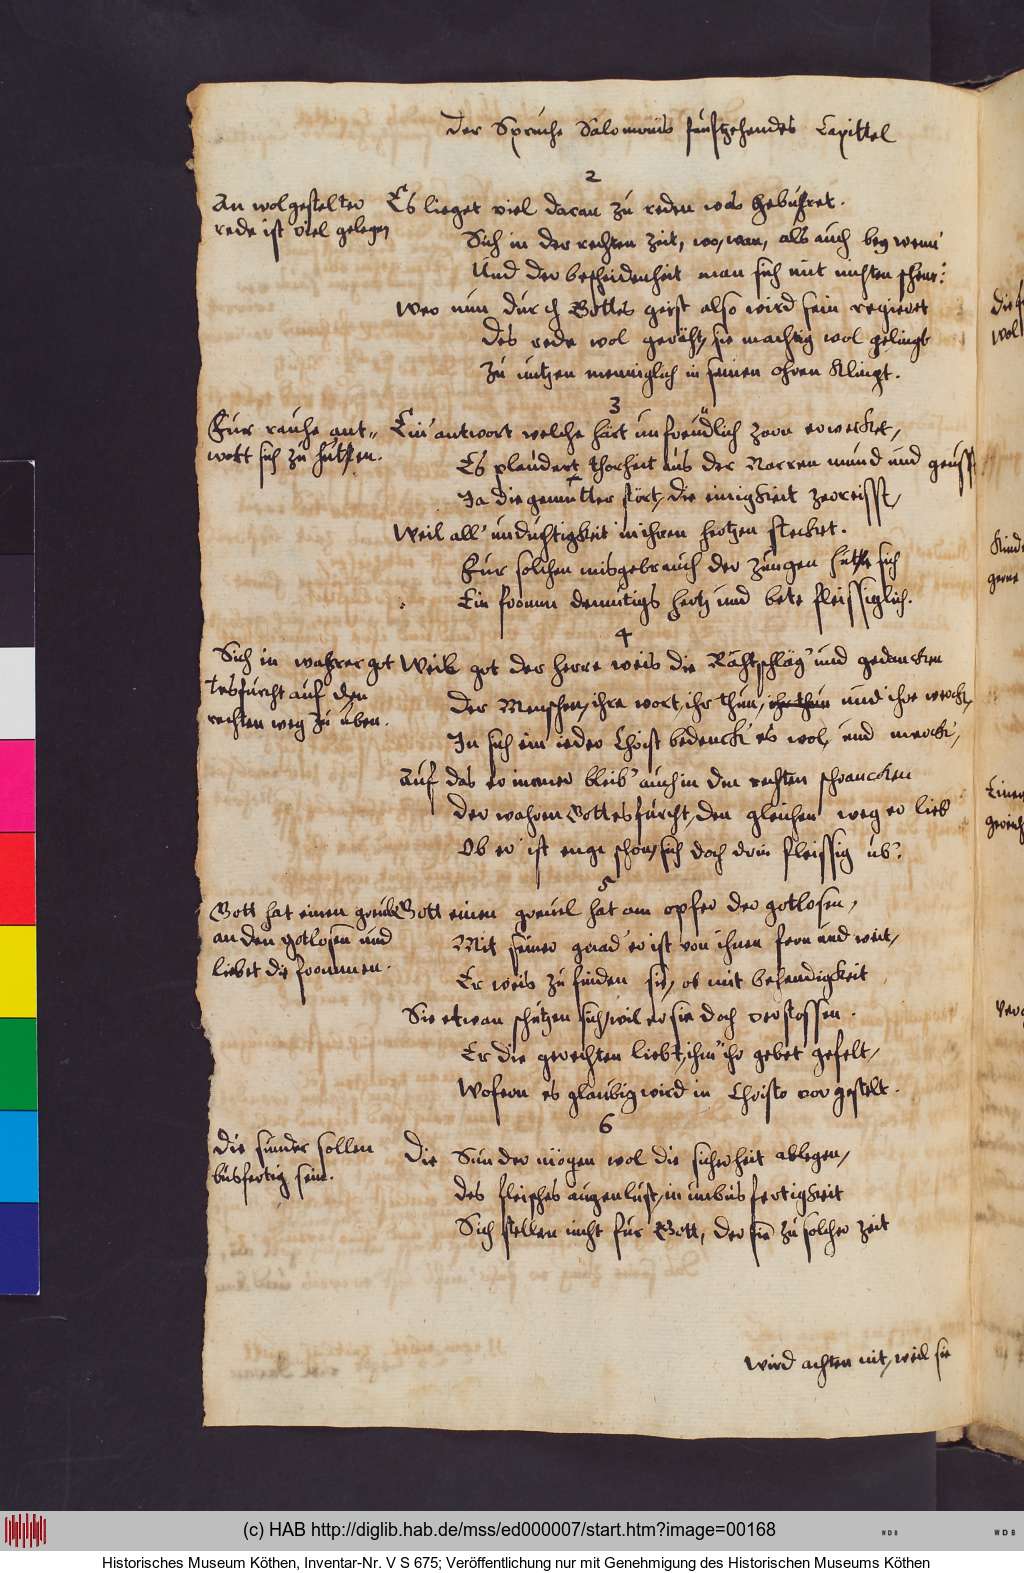 Der Spruche Salomonis funftzehendes Capittel
2
An wolgestelter
rede ist viel gelegen
Es lieget viel daran zu reden was gebuhret.
Sich in der rechten zeit, wo, wan, als auch bey wem
Und der bescheidenheit man sich mit nichten schem:
Wer nun durch Gottes geist also wird sein regieret
Des rede wol geräht, sie machtig wol gelingt
Zu nutzen menniglich in seinen ohren klingt.
3
Fur rauhe ant-
wort sich zu hutten.
Ein antwort welche hart unfreudlich zorn erwecket,
Es plaudert thorheit aus der Narren mund und geusst
Ja die gemutter stört, die einigkeit zerreisst,
Weil all' unduchtigkeit in ihren hertzen stecket.
Fur solchen misgebrauch der zungen hutte sich
Ein fromm demutigs hertz und bete fleissiglich.
4
Sich in wahrer got
tesfurcht auf den
rechten weg zu uben.
Weil got der herre weis die Rähtschläg' und gedancken
Der Menschen, ihre wort, ihr thun, ihr thun und ihre werck,
In sich ein ieder Christ bedenck' es wol, und merck,
Auf das er immer bleib' auch in den rechten schrancken
Der wahren Gottesfurcht, den gleichen weg er lieb
Ob er ist enge schon, sich doch drin fleissig üb'.
5
Gott hat einen greuel
an den gotlosen und
liebet die frommen.
Gott einen greuel hat am opfer der gotlosen,
Mit seiner gnad' er ist von ihnen fern und weit,
Er weis zu finden sie, ob mit behendigkeit
Sie etwan schützen sich, wil er sie doch verstossen.
Er die gerechten liebt, ihm' ihr gebet gefelt,
Wofern es glaubig wird in Christo vorgestelt.
6
Die sunder sollen
busfertig sein.
Die Sunder mögen wol die sicherheit ablegen,
Des fleisches augenlust, in unbusfertigkeit
Sich stellen nicht fur Gott, der sie zu solcher zeit
wird achten nit, weil sie
Die
wol
Kinde
gerne
Einen
(c) HAB http://diglib.hab.de/mss/ed000007/start.htm?image=00168
WDB
WDB
Historisches Museum Köthen, Inventar-Nr. V S 675; Veröffentlichung nur mit Genehmigung des Historischen Museums Köthen